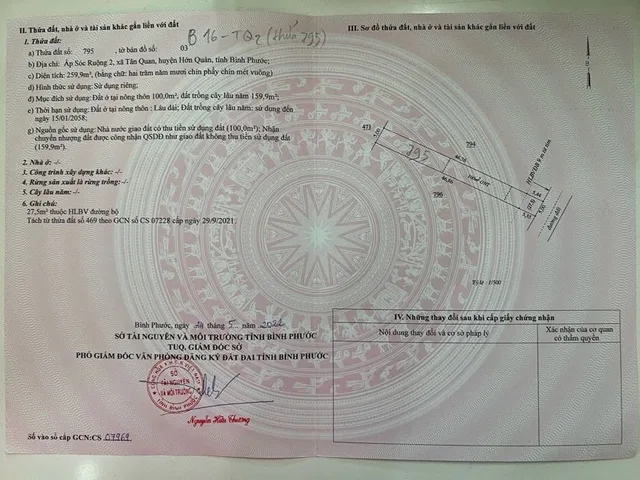 II. Thửa đất, nhà ở và tài sản khác gắn liền với đất
B 16-TQ2 (thửa 795)
1. Thửa đất:
a) Thửa đất số: 795, tờ bản đồ số: 03
b) Địa chỉ: Ấp Sóc Ruộng 2, xã Tân Quan, huyện Hớn Quản, tỉnh Bình Phước;
c) Diện tích: 259,9m², (bằng chữ: hai trăm năm mươi chín phẩy chín mét vuông)
d) Hình thức sử dụng: Sử dụng riêng;
đ) Mục đích sử dụng: Đất ở tại nông thôn 100,0m², đất trồng cây lâu năm 159,9m²;
e) Thời hạn sử dụng: Đất ở tại nông thôn : Lâu dài; Đất trồng cây lâu năm: sử dụng đến
ngày 15/01/2058;
g) Nguồn gốc sử dụng: Nhà nước giao đất có thu tiền sử dụng đất (100,0m²); Nhận
chuyển nhượng đất được công nhận QSDĐ như giao đất không thu tiền sử dụng đất
(159,9m²).
2. Nhà ở: -/-
3. Công trình xây dựng khác: -/-
4. Rừng sản xuất là rừng trồng: -/-
5. Cây lâu năm: -/-
6. Ghi chú:
27,5m² thuộc HLBV đường bộ
Tách từ thửa đất số 469 theo GCN số CS 07228 cấp ngày 29/9/2021.
Bình Phước, ngày 24 tháng 5 năm 2022
SỞ TÀI NGUYÊN VÀ MÔI TRƯỜNG TỈNH BÌNH PHƯỚC
TUQ. GIÁM ĐỐC SỞ
PHÓ GIÁM ĐỐC VĂN PHÒNG ĐĂNG KÝ ĐẤT ĐAI TỈNH BÌNH PHƯỚC
SỞ
TÀI NGUYÊN
VÀ MÔI TRƯỜNG
TỈNH BÌNH PHƯỚC
Nguyễn Hữu Thương
Số vào sổ cấp GCN:CS 07969
III. Sơ đồ thửa đất, nhà ở và tài sản khác gắn liền với đất
473
794
795
46,56
46,66
796
HLBVĐB
đường đất
Tỷ lệ: 1/500
IV. Những thay đổi sau khi cấp giấy chứng nhận
Nội dung thay đổi và cơ sở pháp lý
Xác nhận của cơ quan
có thẩm quyền